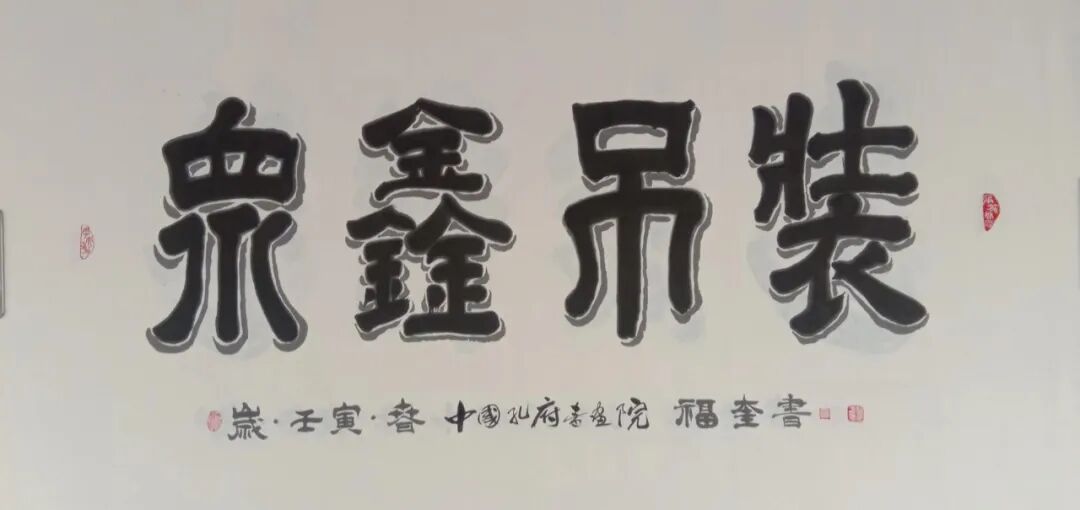 眾鑫吊裝
歲·壬寅·春 中國孔府書畫院 福奎書